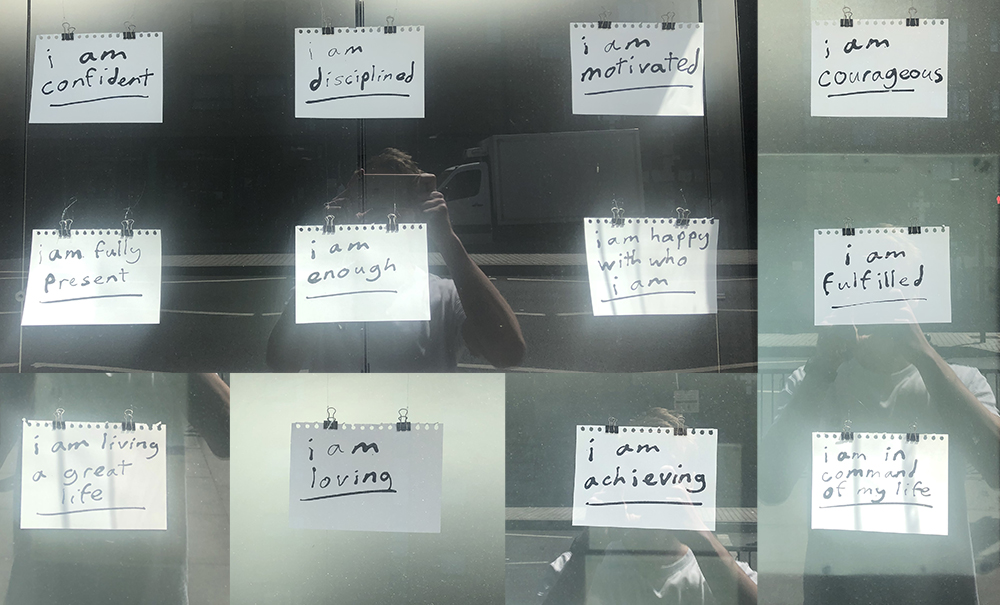 i am
confident
i am
disciplined
i am
motivated
i am
courageous
i am fully
present
i am
enough
i am happy
with who
i am
i am
fulfilled
i am living
a great
life
i am
loving
i am
achieving
i am in
command
of my life